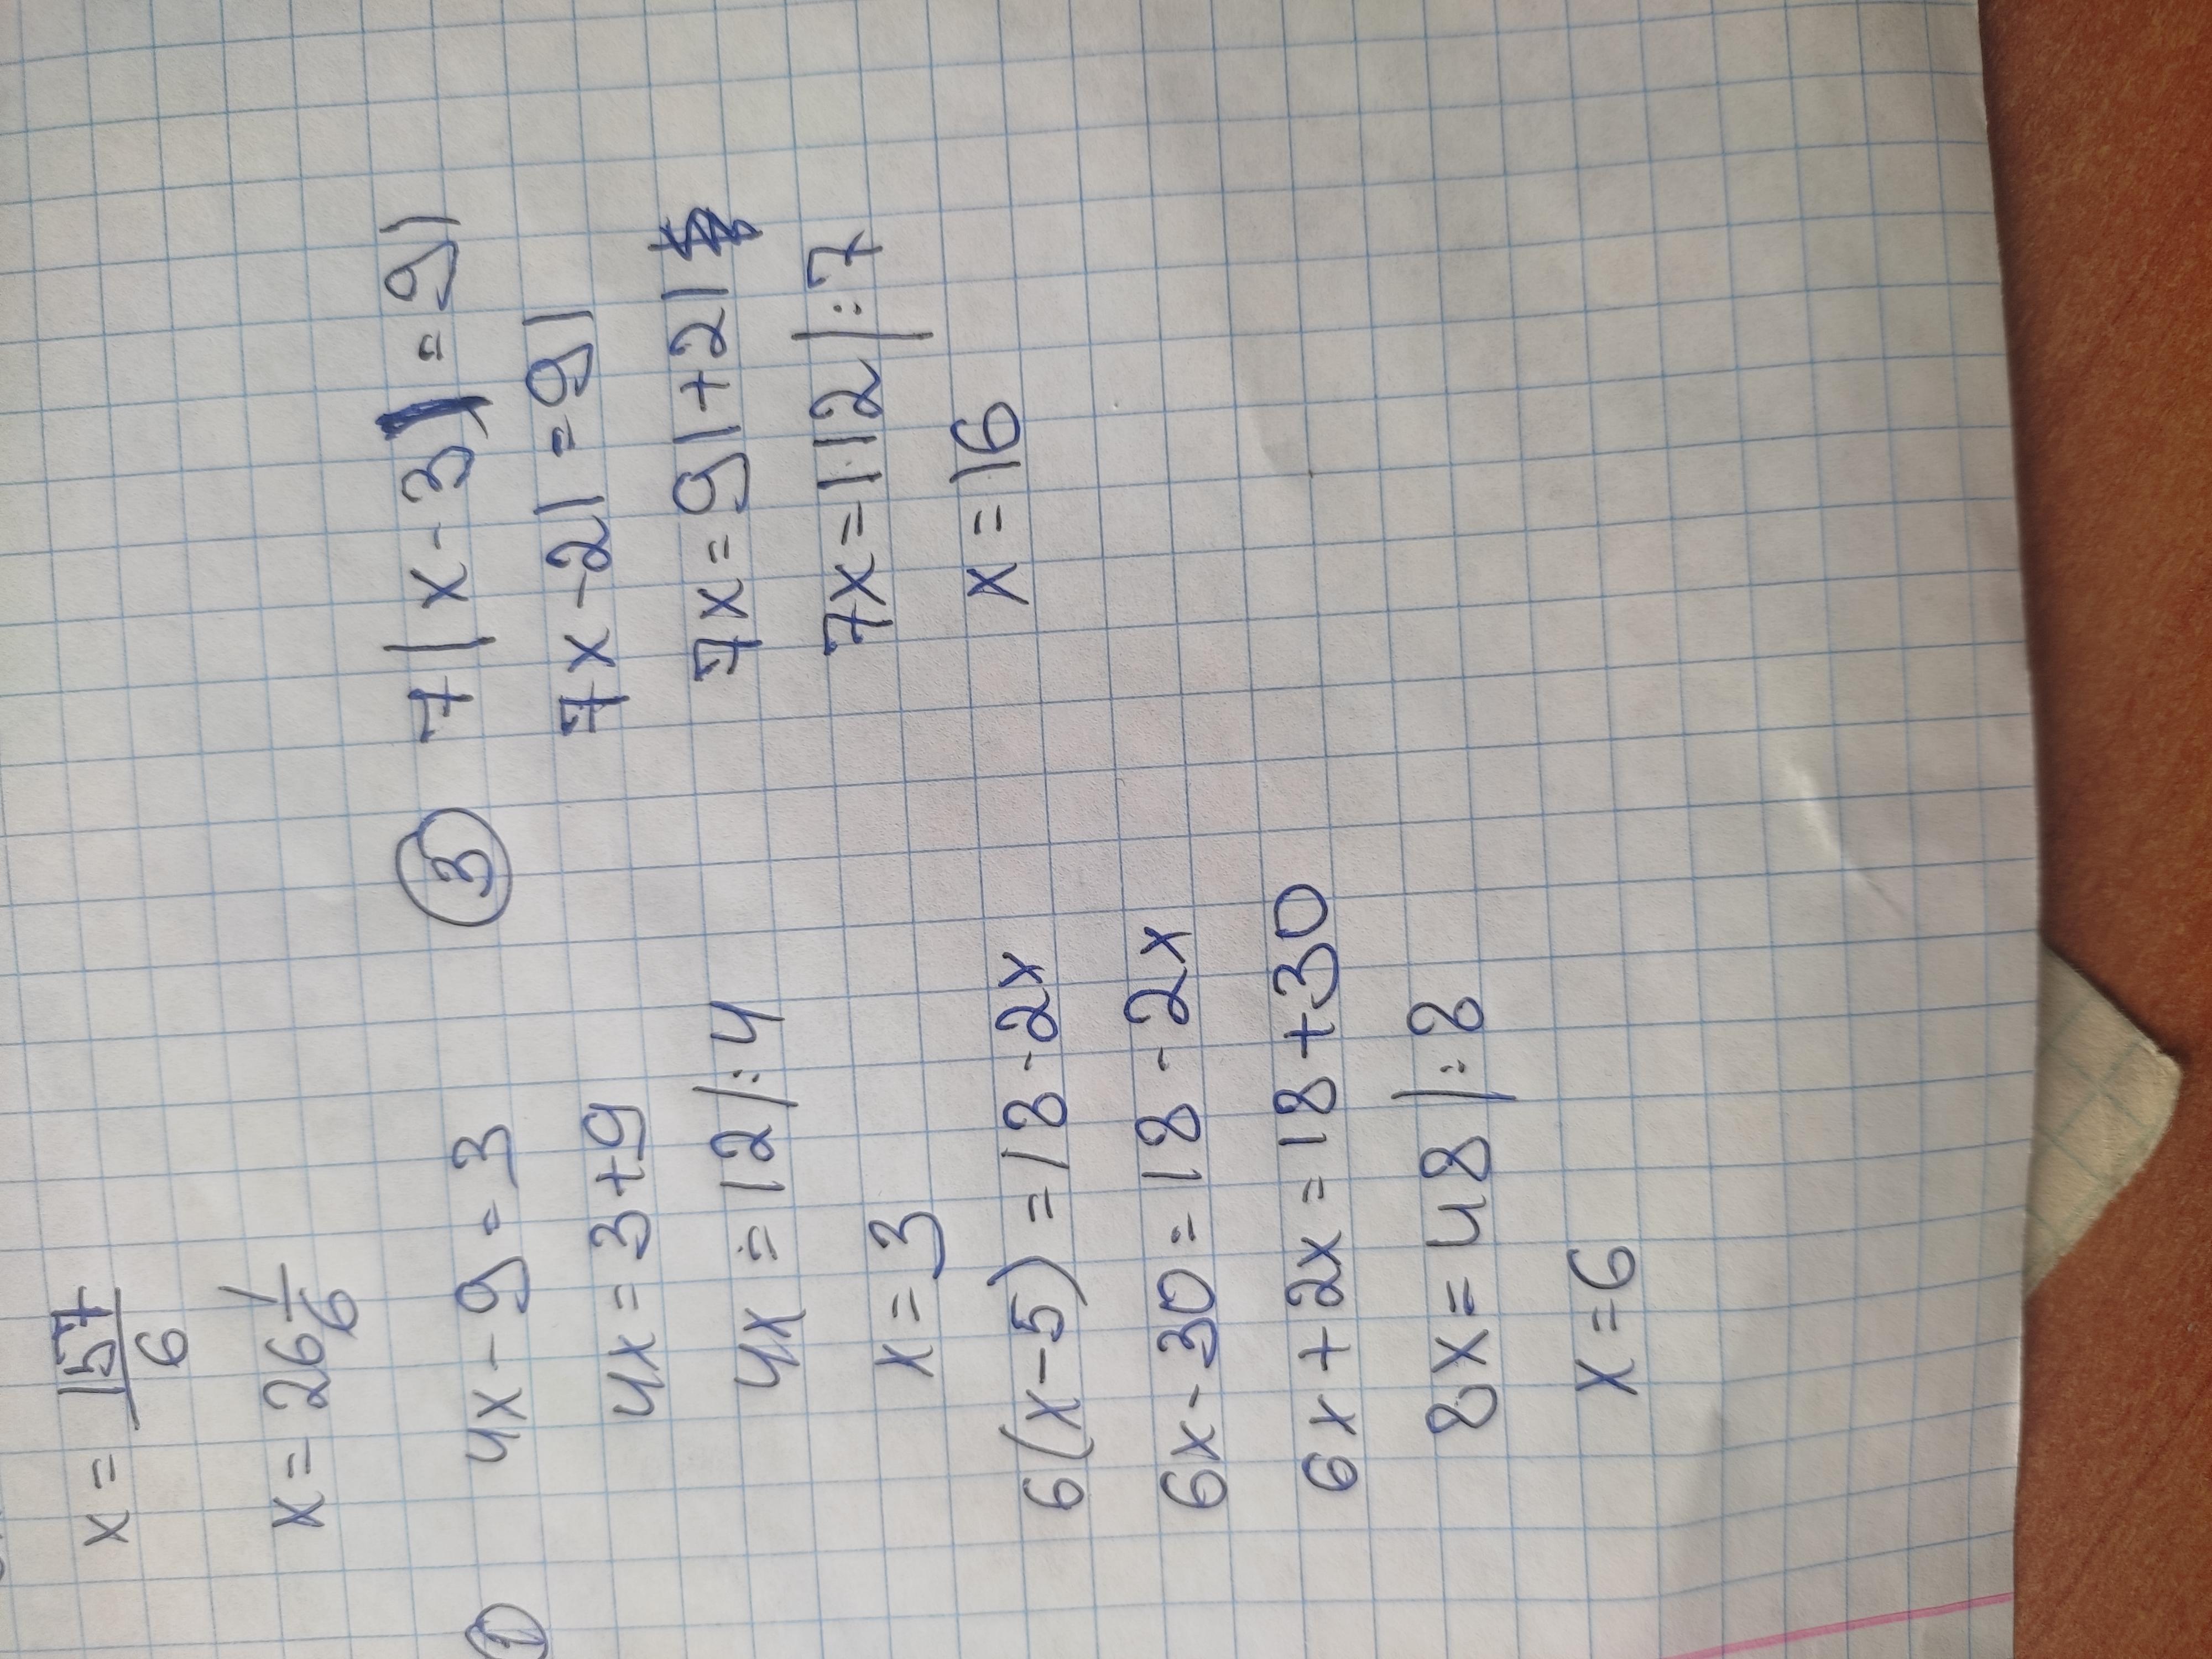 x = 157/6
x = 26 1/6
① 4x - 9 = 3
4x = 3+9
4x = 12 |:4
x = 3
6(x-5) = 18 - 2x
6x - 30 = 18 - 2x
6x + 2x = 18 + 30
8x = 48 |:8
x = 6
③ 7(x - 3) = 91
7x - 21 = 91
7x = 91 + 21
7x = 112 |:7
x = 16